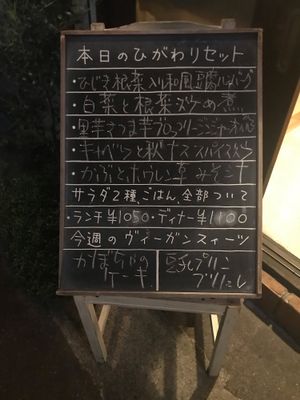 本日のひがわりセット
・ひじき根菜入り和風豆腐ハンバーグ
・白菜と根菜 煮
・里芋さつま芋ブロッコリー
・キャベツと秋ナス スパイス
・かぶとホウレン草 みそ汁
サラダ2種、ごはん、全部ついて
・ランチ¥1050・ディナー¥1100
今週のヴィーガンスィーツ
かぼちゃの 豆乳プリン
ケーキ ブリュレ